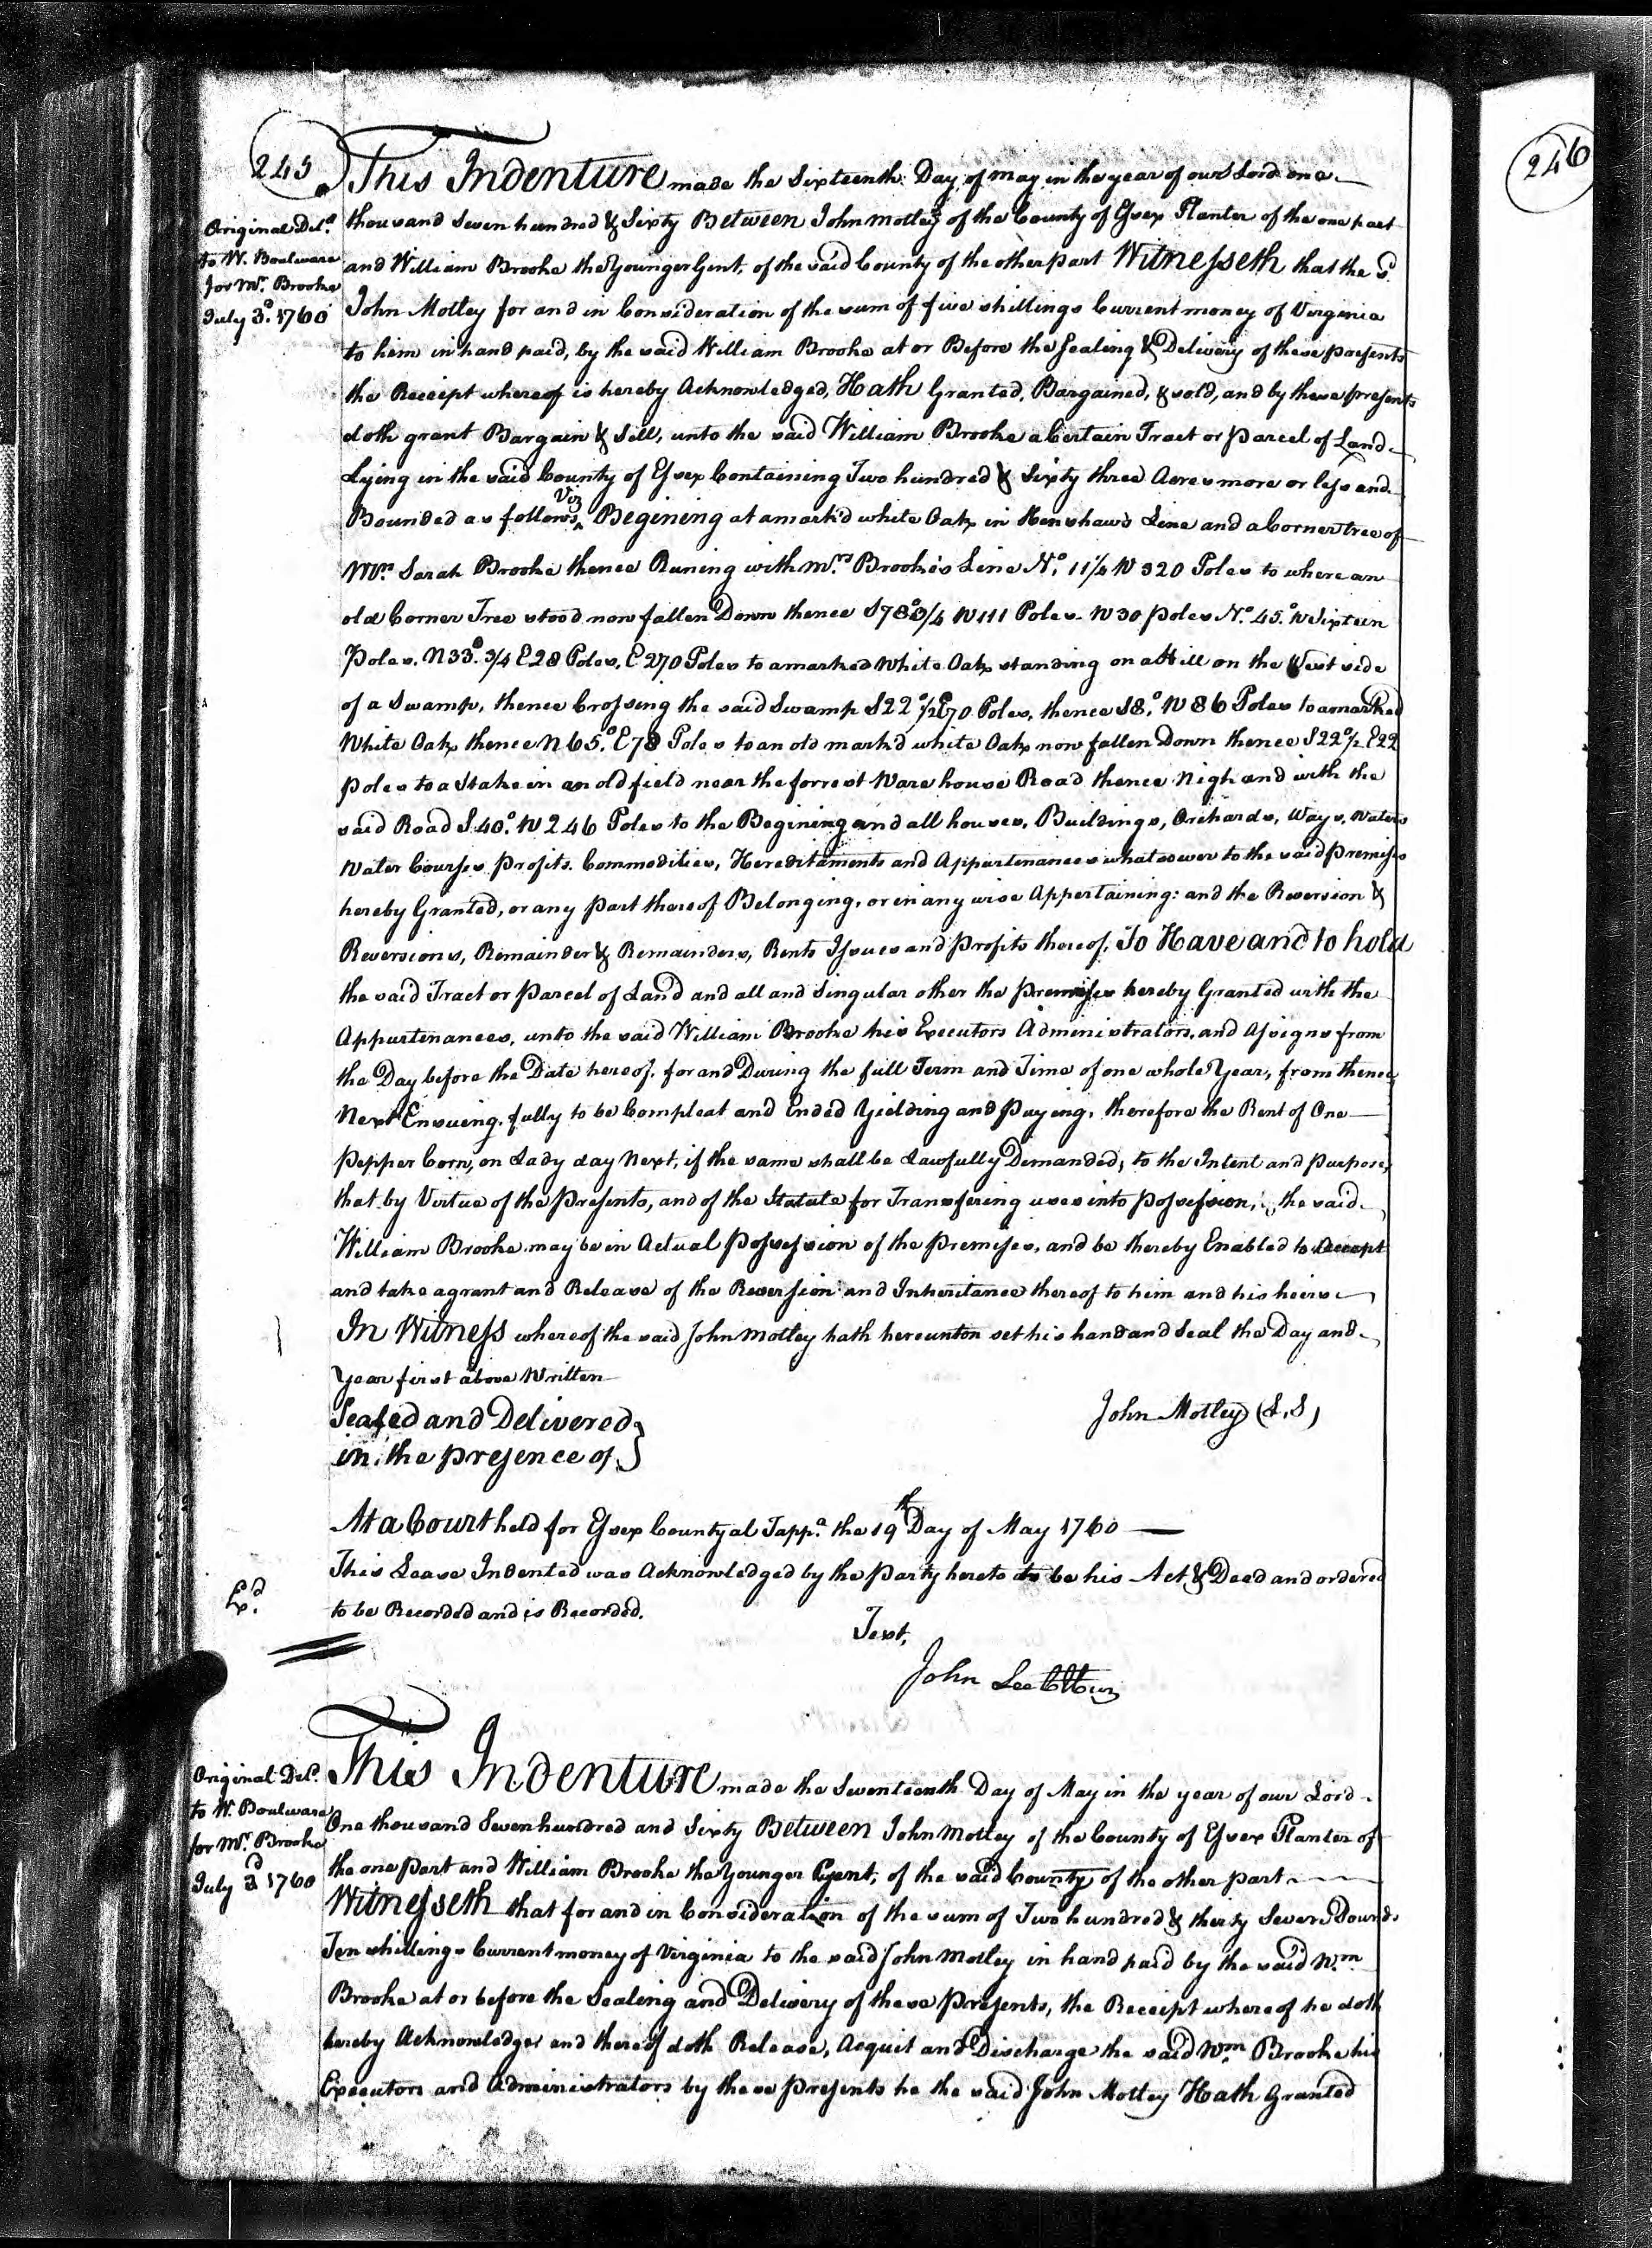 245
246
Original Del.d
to W. Boulware
for Mr. Brooke
July 3.d 1760
This Indenture made the Sixteenth Day of may in the year of our Lord one
thousand Seven hundred & Sixty Between John Motley of the County of Essex Planter of the one part
and William Brooke the Younger Gent, of the said County of the other part Witnesseth that the sd.
John Motley for and in Consideration of the sum of five shillings Current money of Virginia
to him in hand paid, by the said William Brooke at or Before the Sealing & Delivery of these presents
the Receipt whereof is hereby Acknowledged, Hath Granted, Bargained, & sold, and by these presents
doth grant Bargain & Sell, unto the said William Brooke a Certain Tract or parcel of Land
Lying in the said County of Essex Containing Two hundred & Sixty three Acres more or less and
Bounded as follows, Viz Begining at a mark'd white Oak in Henshaw's Line and a Corner tree of
Mrs. Sarah Brooke thence Runing with Mrs. Brooke's Line No. 11¼ W 320 Poles to where an
old Corner Tree stood now fallen Down thence S78°3/4 W111 Poles W 30 poles No. 45.° W Sixteen
Poles. N33.° 3/4 E28 Poles, E 270 Poles to a marked White Oak standing on a Hill on the West side
of a Swamp, thence Crossing the said Swamp S22°½ E70 Poles, thence S8.° W 86 Poles to a marked
White Oak thence N65.° E78 Poles to an old mark'd white Oak now fallen Down thence S22°½ E22
poles to a Stake in an old field near the forrest Ware house Road thence nigh and with the
said Road S40.° W246 Poles to the Begining and all houses, Buildings, Orchards, Ways, Waters
Water Courses Profits. Commodities, Hereditaments and Appurtenances whatsoever to the said premises
hereby Granted, or any part thereof Belonging, or in any wise Appertaining: and the Reversion &
Reversions, Remainder & Remainders, Rents Issues and profits thereof, To Have and to hold
the said Tract or parcel of Land and all and singular other the premises hereby Granted with the
Appurtenances, unto the said William Brooke his Executors Administrators, and Assigns from
the Day before the Date hereof, for and During the full Term and Time of one whole Year, from thence
Next Ensuing, fully to be Compleat and Ended Yielding and Paying, therefore the Rent of One
Pepper Corn, on Lady day Next, if the same shall be Lawfully Demanded, to the Intent and purpose,
that by Virtue of the Presents, and of the Statute for Transfering uses into possession, the said
William Brooke may be in Actual Possession of the Premises, and be thereby Enabled to accept
and take a grant and Release of the Reversion and Inheritance thereof to him and his heirs
In Witness whereof the said John Motley hath hereunton set his hand and Seal the Day and
Year first above Written
John Motley (L.S)
Sealed and Delivered
in the presence of
At a Court held for Essex County at Tappa. the 19th Day of May 1760
This Lease Indented was Acknowledged by the party hereto to be his Act & Deed and ordered
to be Recorded and is Recorded.
Ex.d
Test,
John Lee ClCur
Original Del.
to W. Boulware
for Mr. Brooke
July 3d 1760
This Indenture made the Seventeenth Day of May in the year of our Lord
One thousand Seven hundred and Sixty Between John Motley of the County of Essex Planter of
the one Part and William Brooke the Younger Gent, of the said County of the other part
Witnesseth that for and in Consideration of the sum of Two hundred & thirty Seven Pounds
Ten shillings Current money of Virginia to the said John Motley in hand paid by the said Wm.
Brooke at or before the Sealing and Delivery of these Presents, the Receipt whereof he doth
hereby Acknowledge, and thereof doth Release, Acquit and Discharge the said Wm. Brooke his
Executors and Administrators by these presents he the said John Motley Hath Granted